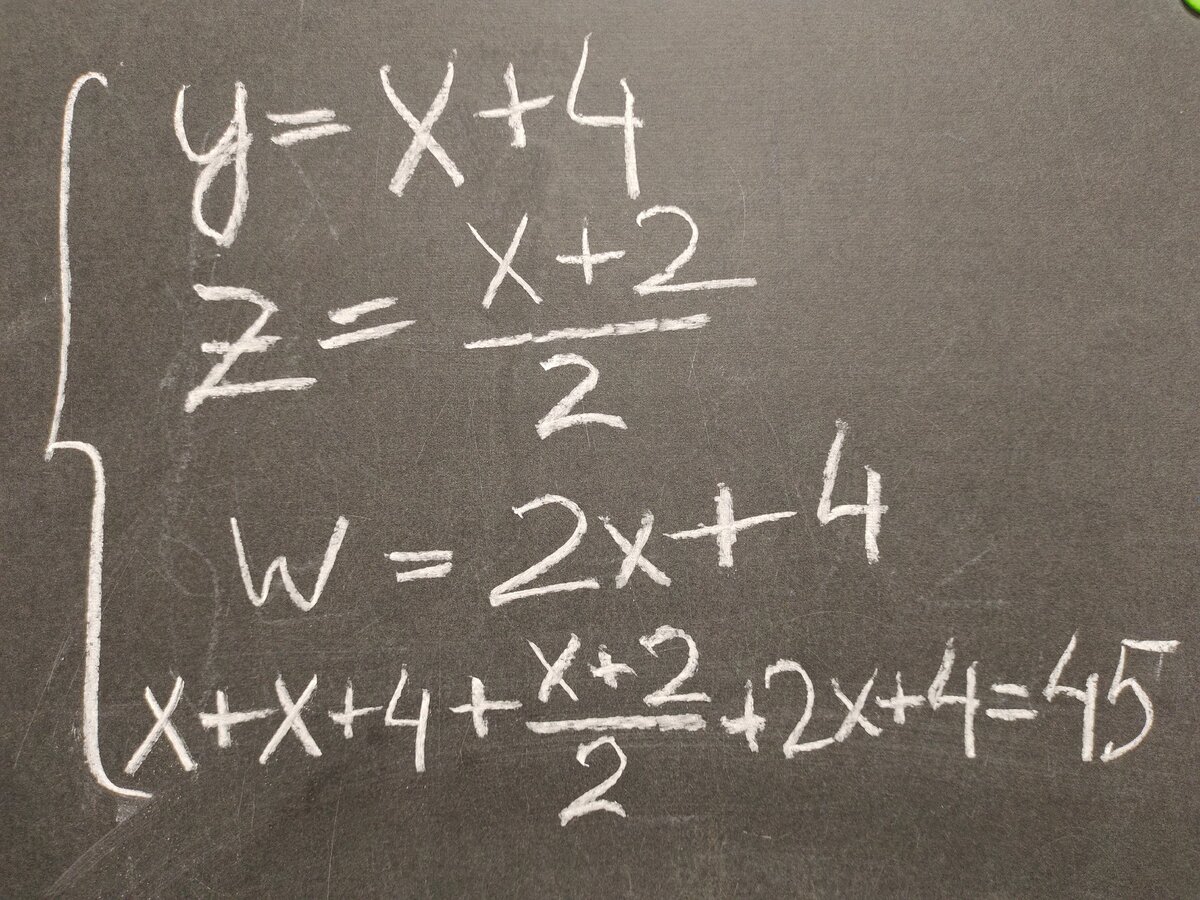 y = x + 4
z = (x + 2) / 2
w = 2x + 4
x + x + 4 + (x + 2) / 2 + 2x + 4 = 45